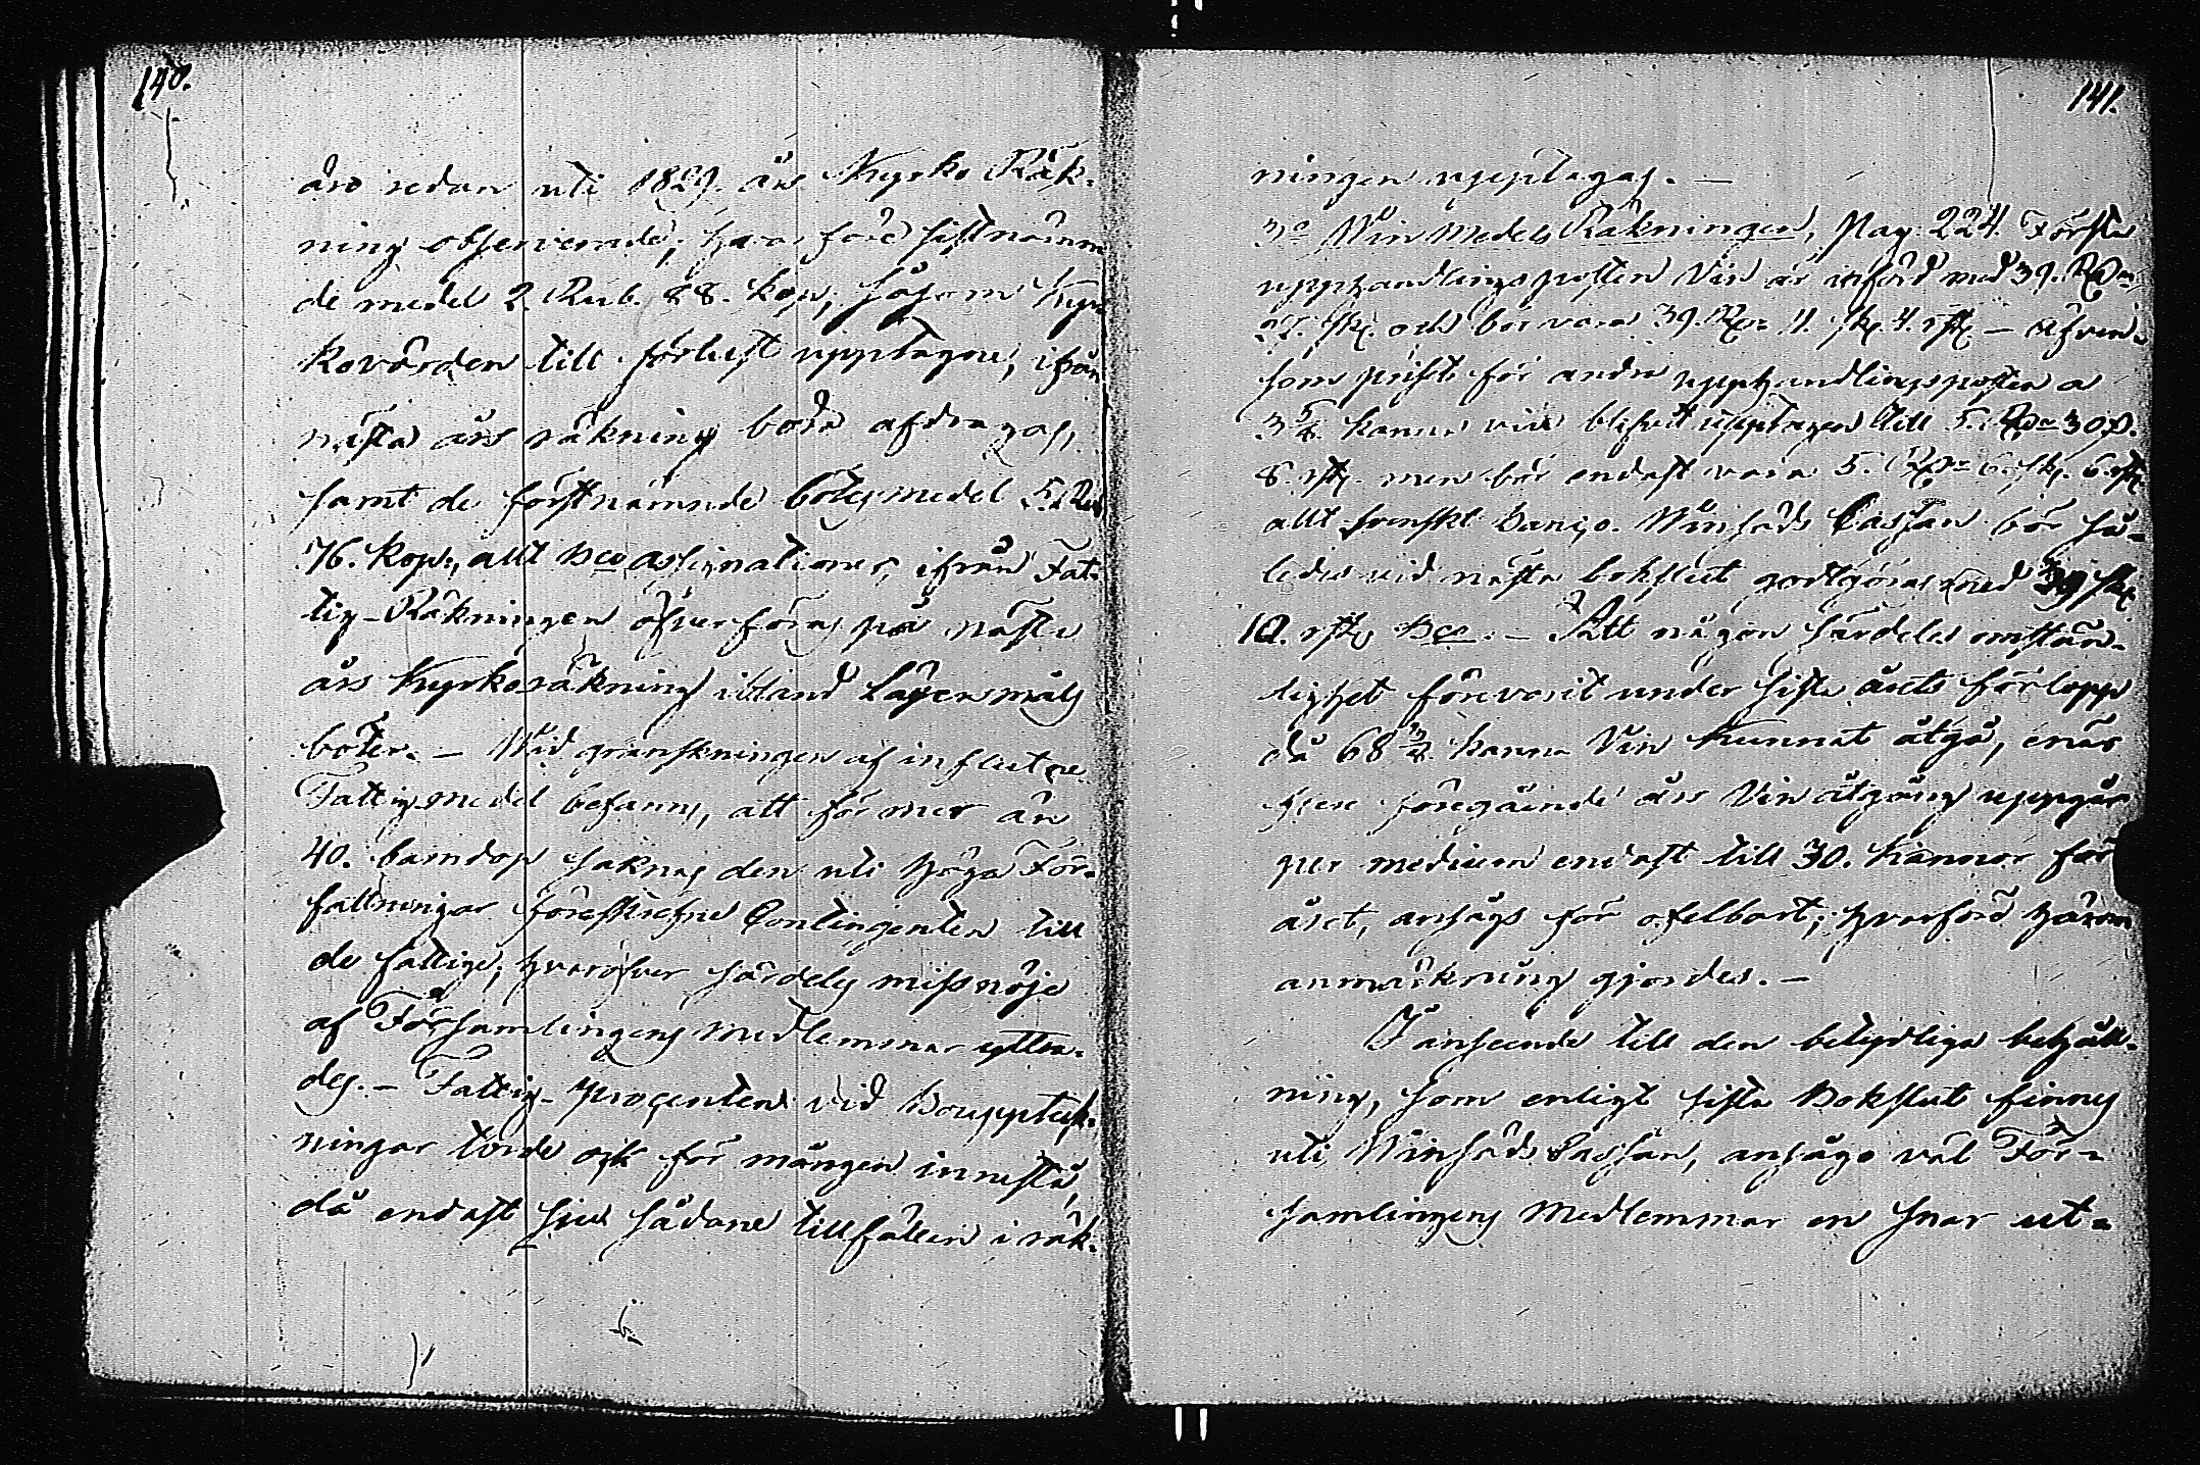 140.
äro redan uti 1829. års Kyrko Räk-
ning observerade; hvarföre sistnämn-
de medel 2. Rub. 88. kop., såsom Kyr-
kovården till förlust upptagne, ifrån
nästa års räkning böra afdragas,
samt de förstnämnde bötesmedel 5. Rub
76. kop:, allt Bco assignationer, ifrån Fat-
tig-Räkningen öfverföras på nästa
års Kyrkoräkning ibland Lägersmåls
böter. - Wid granskningen af influtne
Fattigmedel befanns, att för mer än
40. barndop saknas den uti höga För-
fattningar föreskrefne Contingenten till
de fattige; hvaröfver särdeles missnöje
af Församlingens medlemmar yttra-
des. - Fattig-procenten vid Boupptek-
ningar torde ock för mången innestå,
då endast sju sådane tillfällen i räk-
141.
ningen upptagas. -
3o Winmedels Räkningen, Pag. 224. Första
upphandlingsposten Vin är införd med 39. Rd
27. sk. och bör vara 39. Rd 11. sk. 4. rst. - äfven-
som priset för andra upphandlingsposten a
3 5/8 kanna vin blifvit upptagen till 5. Rd 30 s.
8. rst. men bör endast vara 5. Rd 6. sk. 6. rst.
allt svenskt Banco. Winsäds Cassan bör så-
ledes vid nästa bokslut godtgöras med 39 sk
10. rst. Bco. - Att någon särdeles omstän-
dighet förevarit under sista årets förlopp
då 68 kanna Vin kunnat åtgå, enär
flere föregående års Vinåtgång uppgår
per medium endast till 30. kannor för
året, ansågs för ofelbart; hvarföre härom
anmärkning gjordes. -
I anseende till den betydliga behåll-
ning, som enligt sista Bokslut finnes
uti Winsäds Cassan, ansågo väl För-
samlingens Medlemmar en snar ut-